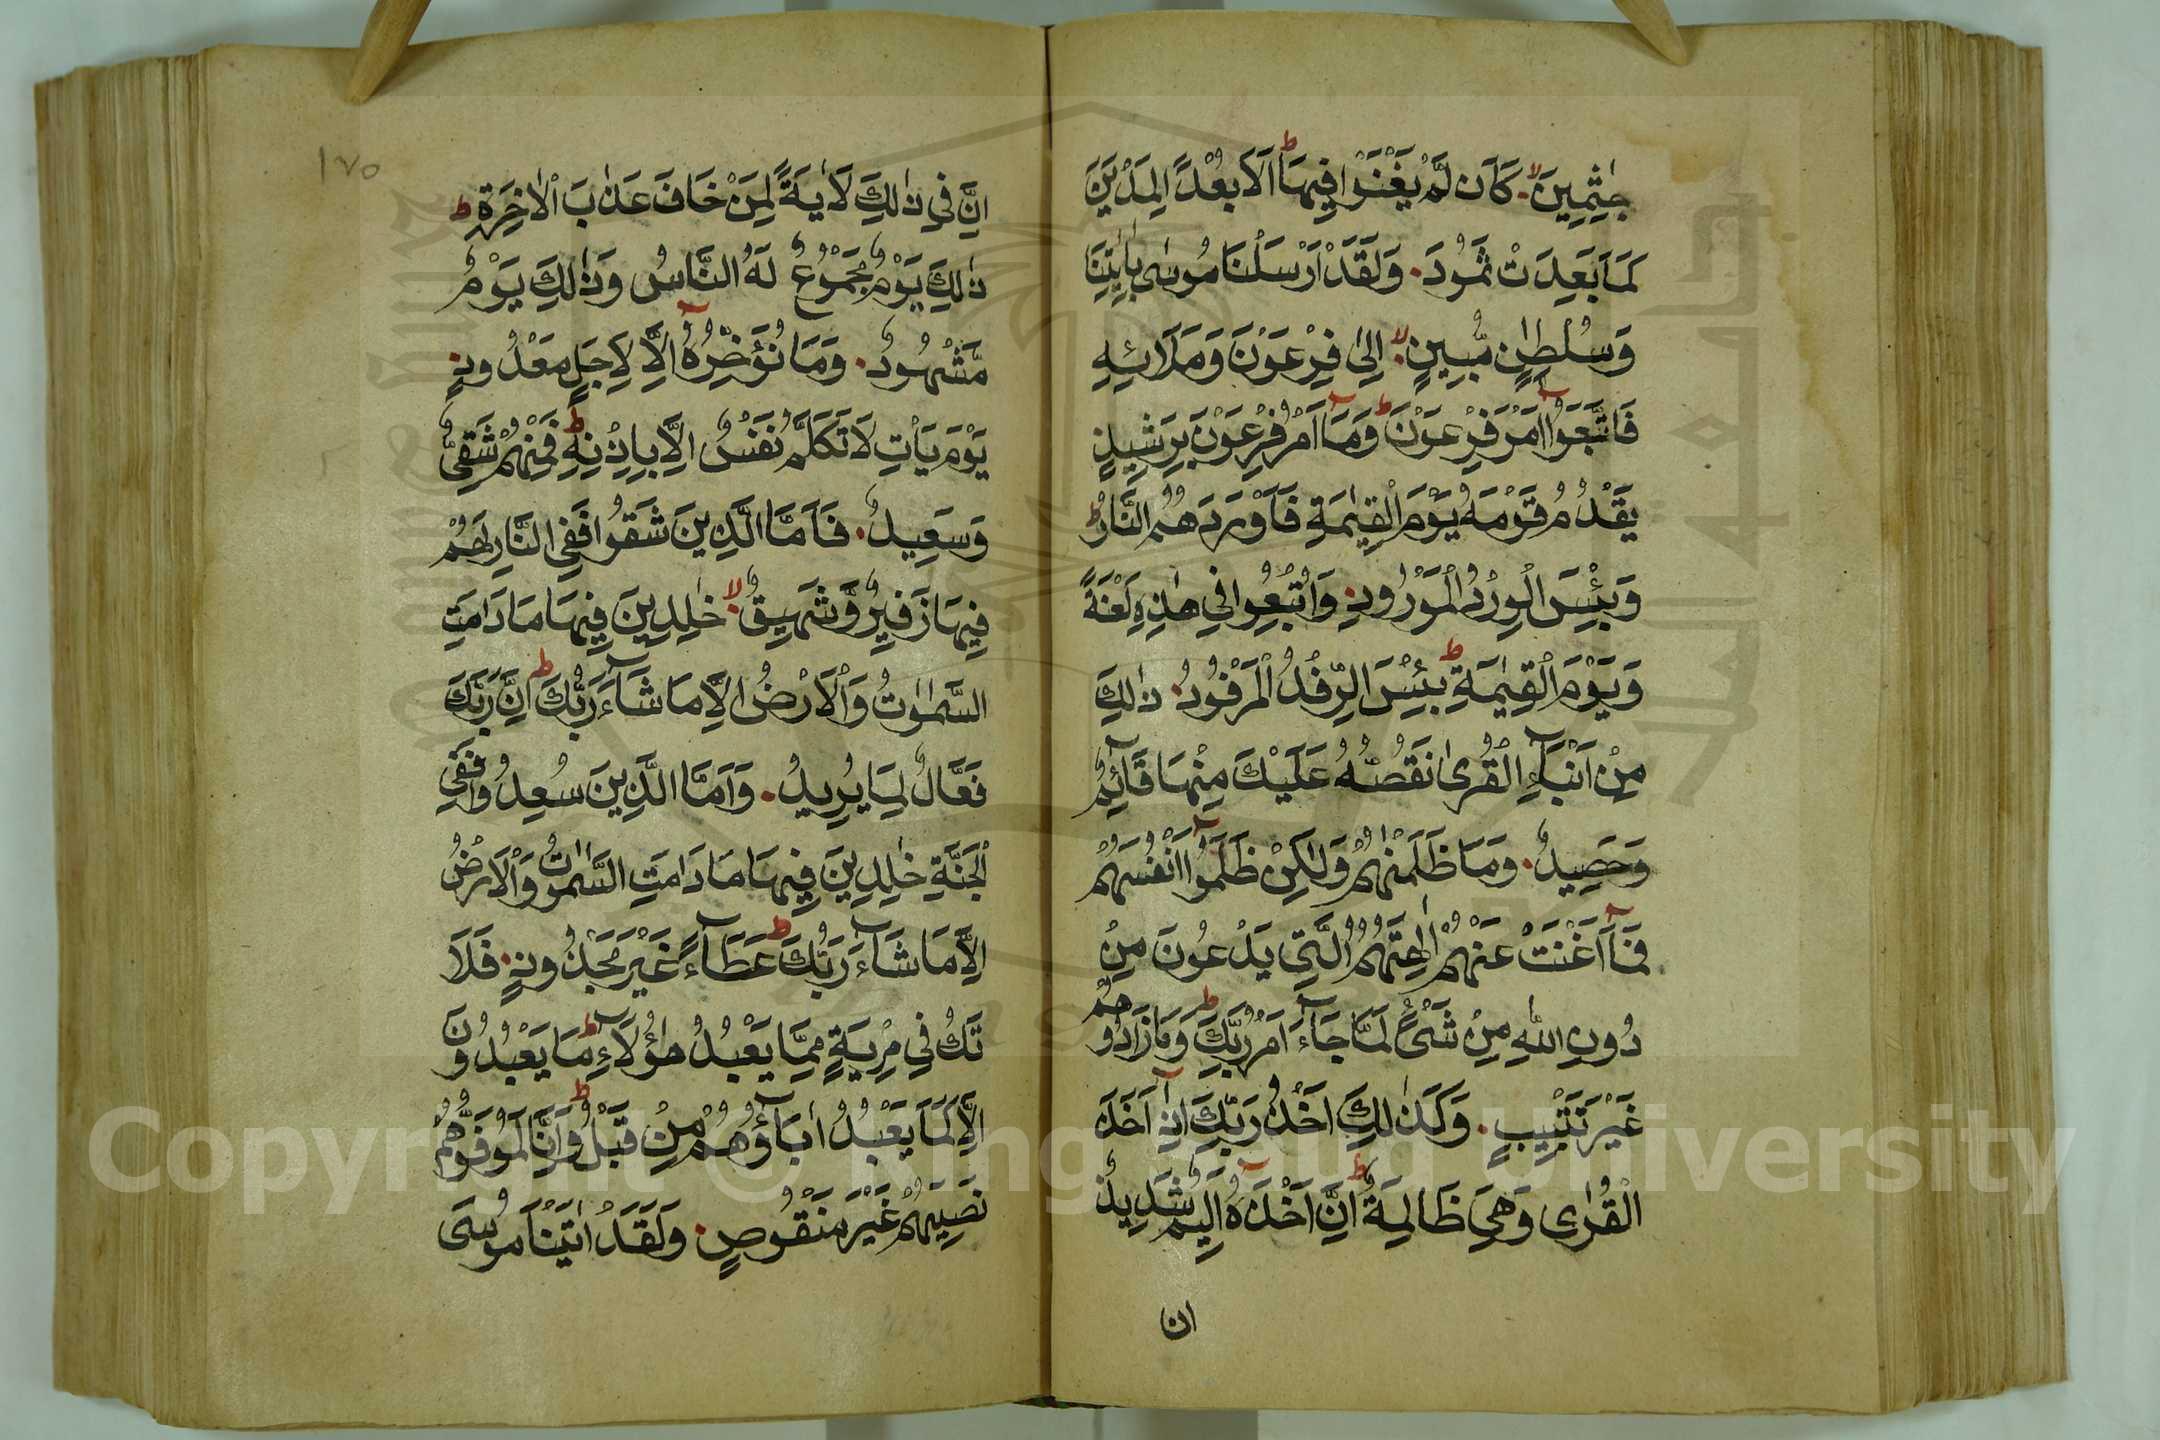 جٰثِمِينَ لا كَاَن لَّمْ يَغْنَوْا فِيهَا ط اَلَا بُعْدًا لِّمَدْيَنَ
كَمَا بَعِدَتْ ثَمُودُ وَلَقَدْ اَرْسَلْنَا مُوسٰى بِاٰيٰتِنَا
وَسُلْطٰنٍ مُّبِينٍ لا اِلٰى فِرْعَوْنَ وَمَلَائِهِ
فَاتَّبَعُوٓا اَمْرَ فِرْعَوْنَ ط وَمَآ اَمْرُ فِرْعَوْنَ بِرَشِيدٍ
يَقْدُمُ قَوْمَهُ يَوْمَ الْقِيٰمَةِ فَاَوْرَدَهُمُ النَّارَ ط
وَبِئْسَ الْوِرْدُ الْمَوْرُودُ وَاُتْبِعُوا فِي هٰذِهِ لَعْنَةً
وَيَوْمَ الْقِيٰمَةِ ط بِئْسَ الرِّفْدُ الْمَرْفُودُ ذٰلِكَ
مِنْ اَنْبَآءِ الْقُرٰى نَقُصُّهُ عَلَيْكَ مِنْهَا قَآئِمٌ
وَحَصِيدٌ وَمَا ظَلَمْنٰهُمْ وَلٰكِنْ ظَلَمُوٓا اَنْفُسَهُمْ
فَمَآ اَغْنَتْ عَنْهُمْ اٰلِهَتُهُمُ الَّتِي يَدْعُونَ مِنْ
دُونِ اللّٰهِ مِنْ شَيْءٍ لَمَّا جَآءَ اَمْرُ رَبِّكَ ط وَمَا زَادُوهُمْ
غَيْرَ تَتْبِيبٍ وَكَذٰلِكَ اَخْذُ رَبِّكَ اِذَآ اَخَذَ
الْقُرٰى وَهِيَ ظَالِمَةٌ ط اِنَّ اَخْذَهُٓ اَلِيمٌ شَدِيدٌ
ان
١٧٥
اِنَّ فِي ذٰلِكَ لَاٰيَةً لِمَنْ خَافَ عَذَابَ الْاٰخِرَةِ ط
ذٰلِكَ يَوْمٌ مَجْمُوعٌ لَهُ النَّاسُ وَذٰلِكَ يَوْمٌ
مَّشْهُودٌ وَمَا نُؤَخِّرُهُٓ اِلَّا لِاَجَلٍ مَعْدُودٍ
يَوْمَ يَاْتِ لَا تَكَلَّمُ نَفْسٌ اِلَّا بِاِذْنِهِ ط فَمِنْهُمْ شَقِيٌّ
وَسَعِيدٌ فَاَمَّا الَّذِينَ شَقُوا فَفِي النَّارِ لَهُمْ
فِيهَا زَفِيرٌ وَّشَهِيقٌ لا خٰلِدِينَ فِيهَا مَا دَامَتِ
السَّمٰوٰتُ وَالْاَرْضُ اِلَّا مَا شَآءَ رَبُّكَ ط اِنَّ رَبَّكَ
فَعَّالٌ لِمَا يُرِيدُ وَاَمَّا الَّذِينَ سُعِدُوا فَفِي
الْجَنَّةِ خٰلِدِينَ فِيهَا مَا دَامَتِ السَّمٰوٰتُ وَالْاَرْضُ
اِلَّا مَا شَآءَ رَبُّكَ ط عَطَآءً غَيْرَ مَجْذُوذٍ فَلَا
تَكُ فِي مِرْيَةٍ مِمَّا يَعْبُدُ هٰؤُلَآءِ ط مَا يَعْبُدُونَ
اِلَّا كَمَا يَعْبُدُ اٰبَآؤُهُمْ مِنْ قَبْلُ ط وَاِنَّا لَمُوَفُّوهُمْ
نَصِيبَهُمْ غَيْرَ مَنْقُوصٍ وَلَقَدْ اٰتَيْنَا مُوسَى
Copyright © King Saud University